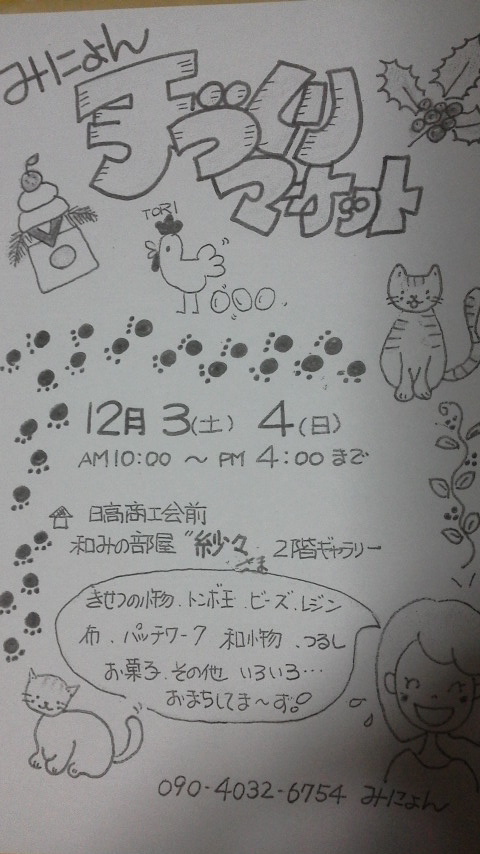 みにょん
手づくり
マーケット
TORI
12月3(土) 4(日)
AM10:00 〜 PM 4:00 まで
日高商工会前
和みの部屋"紗々さま 2階ギャラリー
きせつの小物、トンボ玉、ビーズ、レジン
布、パッチワーク 和小物、つるし
お菓子、その他 いろいろ…
おまちしてま〜す。
090-4032-6754 みにょん